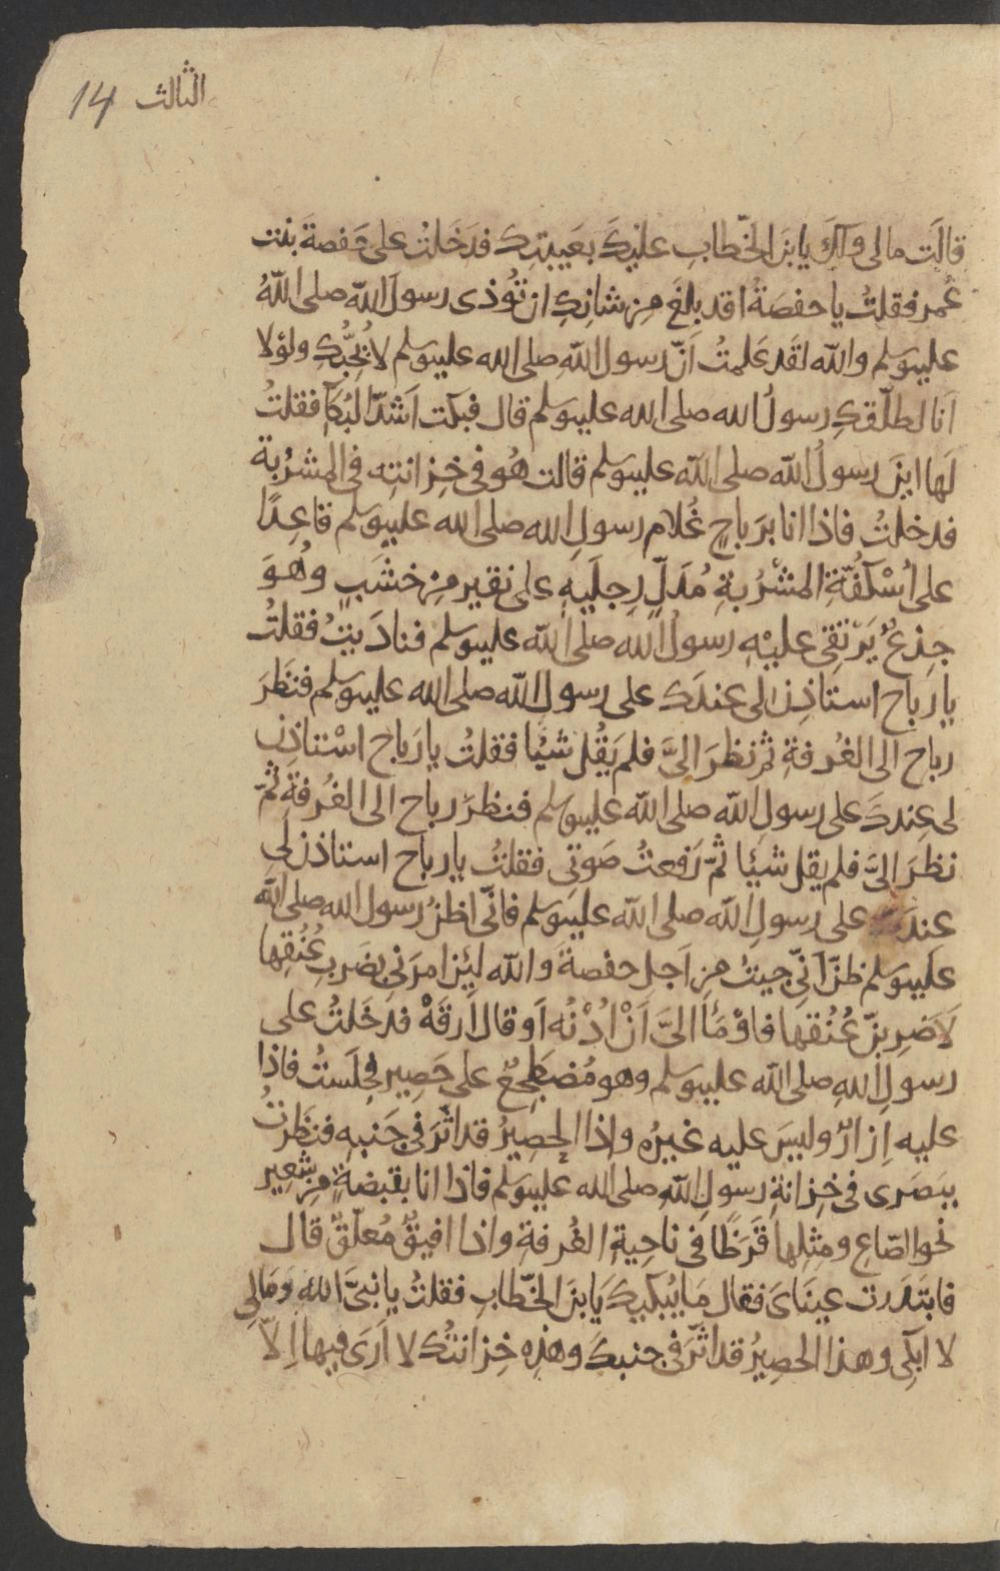 الثالث 14
قالَت مالى ولكَ يابنَ الخَطّابِ عليكَ بعَيبتِكَ فدَخَلتُ على حَفصةَ بنت
عُمر فقلتُ ياحفصَةُ اقد بلغَ مِن شانِكِ ان تُوذى رسولَ الله صلى اللهُ
عليه وسلم والله لقَد عَلمتُ اَنّ رسول اللهِ صلى الله عليه وسلم لا يُحِبُّكِ ولولا
اَنا لطلّقكِ رسولُ الله صلى الله عليه وسلم قال فبكَت اَشدّ البُكآ فقلتُ
لَها اينَ رسولُ الله صلى الله عليه وسلم قالت هُو فى خِزانتِه فى المشرُبة
فدخلتُ فاذا انا برَباحٍ غُلام رسولِ الله صلى الله عليه وسلم قاعِدًا
على اُسْكُفّةِ المشْرُبةِ مُدَلٍّ رِجلَيهِ على نقيرٍ مِن خشَبٍ وهُوَ
جِذعٌ يَرْتقِى عليْهِ رسولُ الله صلى الله عليه وسلم فنادَيتُ فقلتُ
يا رَباح استاذِن لى عندَك على رسولِ الله صلى الله عليه وسلم فنَظَرَ
رباح الى الغُرفةِ ثم نظرَ الىَّ فلم يَقُل شيْا فقلتُ يا رَباح اسْتاذِن
لى عِندكَ على رسولِ الله صلى الله عليه وسلم فنظرَ رباح الى الغُرفةِ ثمّ
نظرَ الىَّ فلم يقل شيئا ثمّ رَفعتُ صَوتى فقلتُ يا رباح استاذن لى
عندَك على رسولِ الله صلى الله عليه وسلم فانّى اظنُ رسول الله صلى الله
عليه وسلم ظنّ اَنّى جيتُ مِن اَجل حفصةَ والله ليِن امرَنى بضَربِ عُنُقِها
لَاَضرِبنّ عُنُقَها فاوْمَأ الىَّ اَنْ اُدْنُه اَو قال اَرقَهْ فدخَلتُ على
رسولِ اللهِ صلى الله عليه وسلم وهو مُضطَجِعٌ على حَصِيرٍ فجلَستُ فاذا
عليه اِزارٌ وليسَ عليه غيرُه واِذا الحصِيرُ قد اثّرَ فى جَنبِه فنظَرتُ
ببَصَرى فى خِزانةِ رسولِ اللهِ صلى الله عليه وسلم فاذا انا بقبضةٍ من شعِير
نحوا لصّاعِ ومِثلِها قَرَظًا فى ناحِيةِ الغُرفةِ واذا افيقٌ مُعلّقٌ قال
فابتَدَرت عينَاىَ فقال مَا يُبكيكَ يَابنَ الخَطّابِ فقلتُ يا نبىَّ الله ومَالِى
لا ابكِى وهذا الحصِيرُ قد اثّرَ فى جنبكَ وهذِه خِزانتُك لا اَرَى فيها اِلاّ